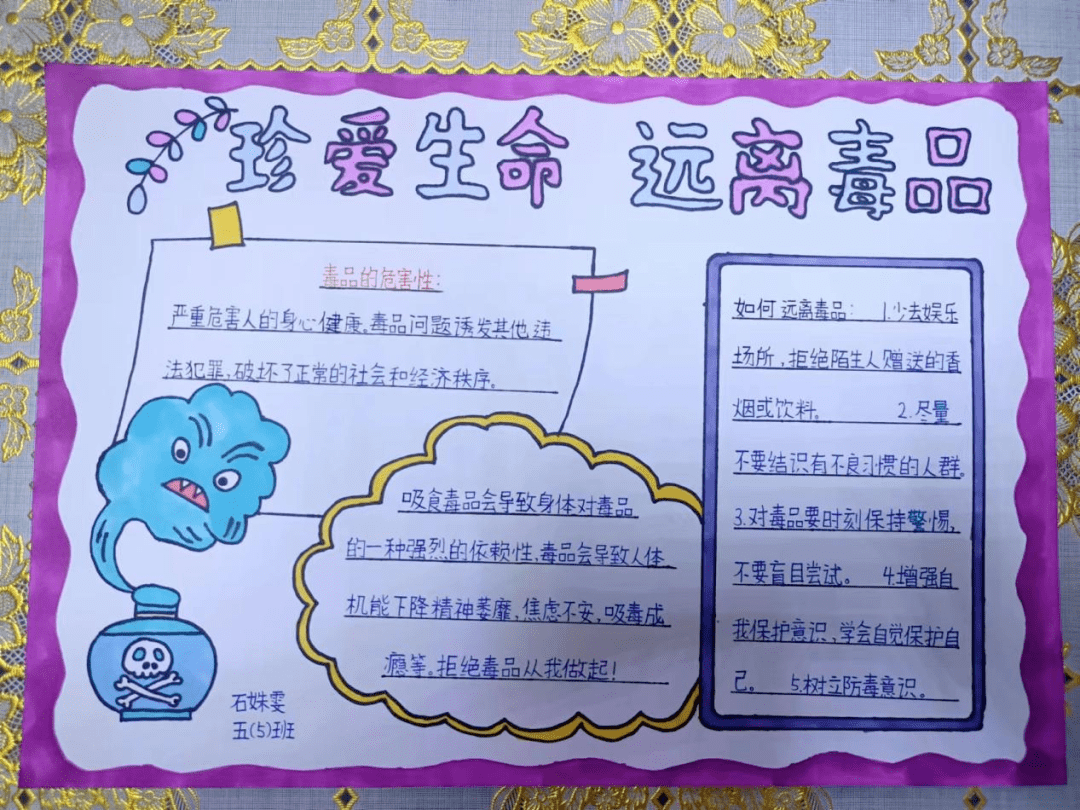 珍爱生命 远离毒品
毒品的危害性:
严重危害人的身心健康。毒品问题诱发其他违
法犯罪,破坏了正常的社会和经济秩序。
吸食毒品会导致身体对毒品
的一种强烈的依赖性,毒品会导致人体
机能下降精神萎靡,焦虑不安,吸毒成
瘾等。拒绝毒品从我做起!
如何远离毒品: 1.少去娱乐
场所,拒绝陌生人赠送的香
烟或饮料。 2.尽量
不要结识有不良习惯的人群。
3.对毒品要时刻保持警惕,
不要盲目尝试。 4.增强自
我保护意识,学会自觉保护自
己。 5.树立防毒意识。
石姝雯
五(5)班